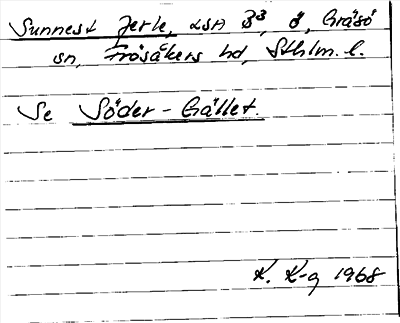 Sunnest Jerk, LSA B3, ö, Gräsö
sn, Frösåkers hd, Sthlm. l.
Se Söder-Gället.
K. K-g 1968